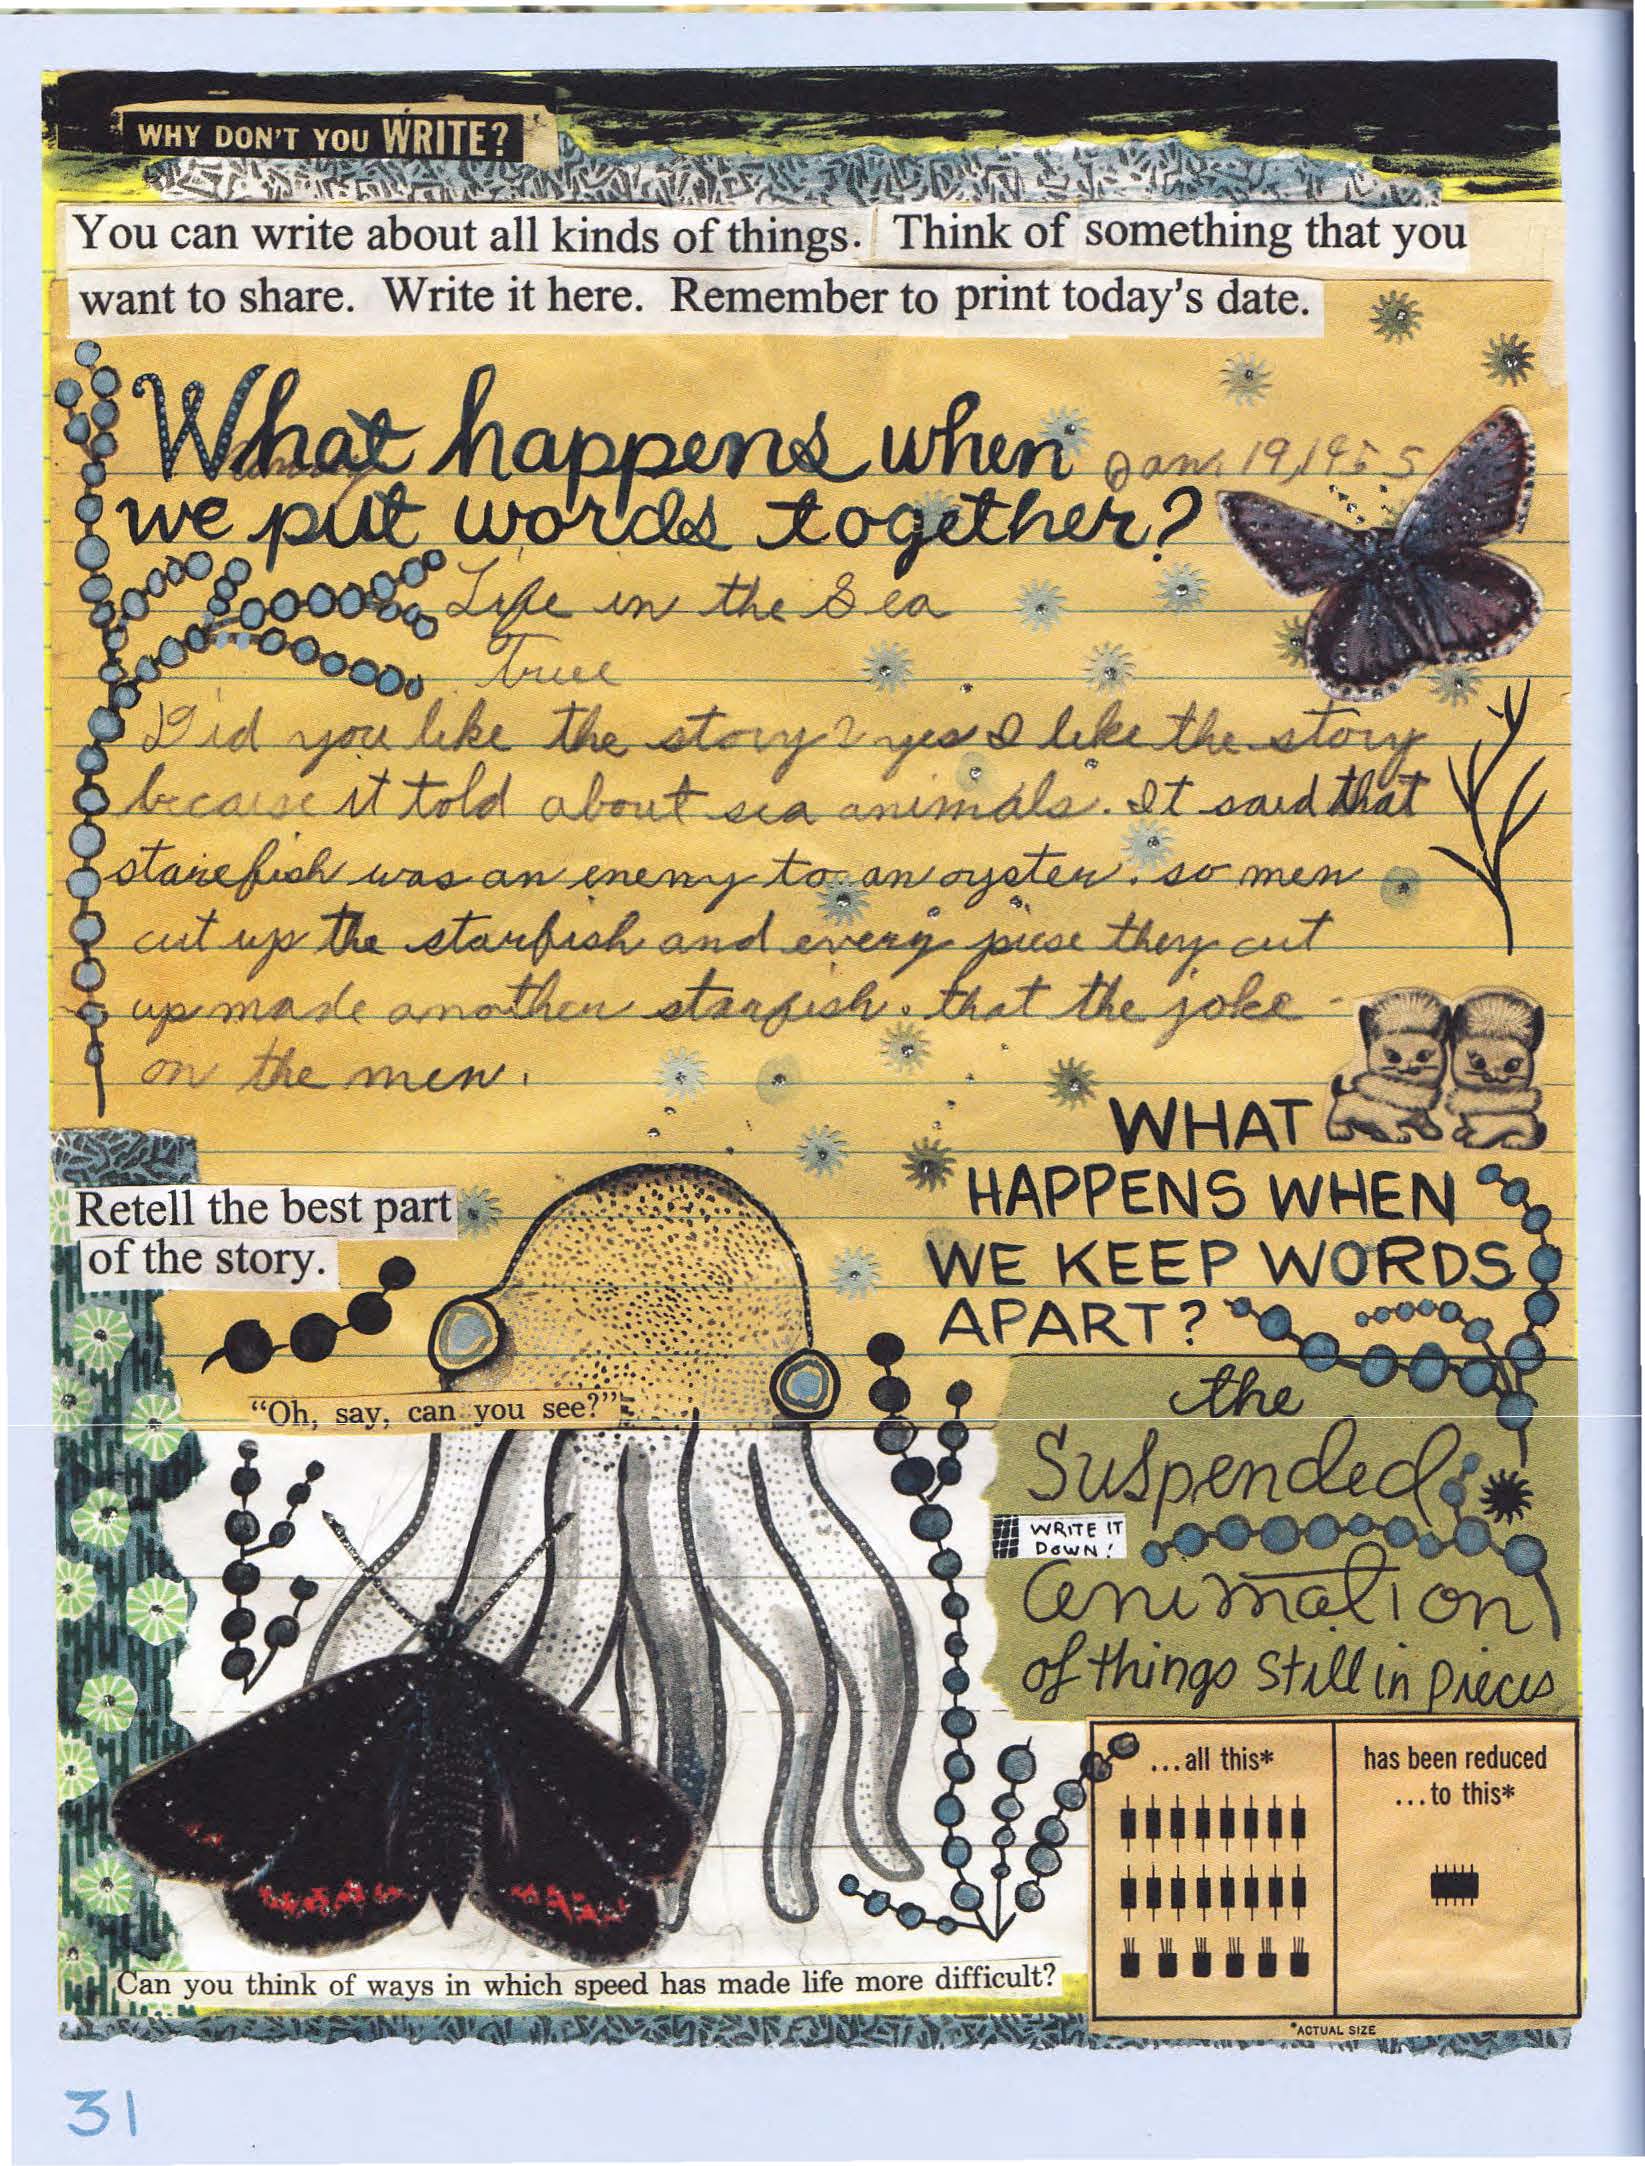 WHY DON'T YOU WRITE?
You can write about all kinds of things. Think of something that you
want to share. Write it here. Remember to print today's date.
What happens when
Jan. 19, 1955
we put words together?
Life in the Sea
True
Did you like the story? yes I like the story
because it told about sea animals. It said that
starefish was an enemy to an oyster. so men
cut up the starfish and every piese they cut
up made another starfish. that the joke
on the men.
WHAT
HAPPENS WHEN
WE KEEP WORDS
APART?
Retell the best part
of the story.
"Oh, say, can you see?"
the
Suspended
WRITE IT
DOWN!
animation
of things still in pieces
...all this*
has been reduced
...to this*
*ACTUAL SIZE
Can you think of ways in which speed has made life more difficult?
31